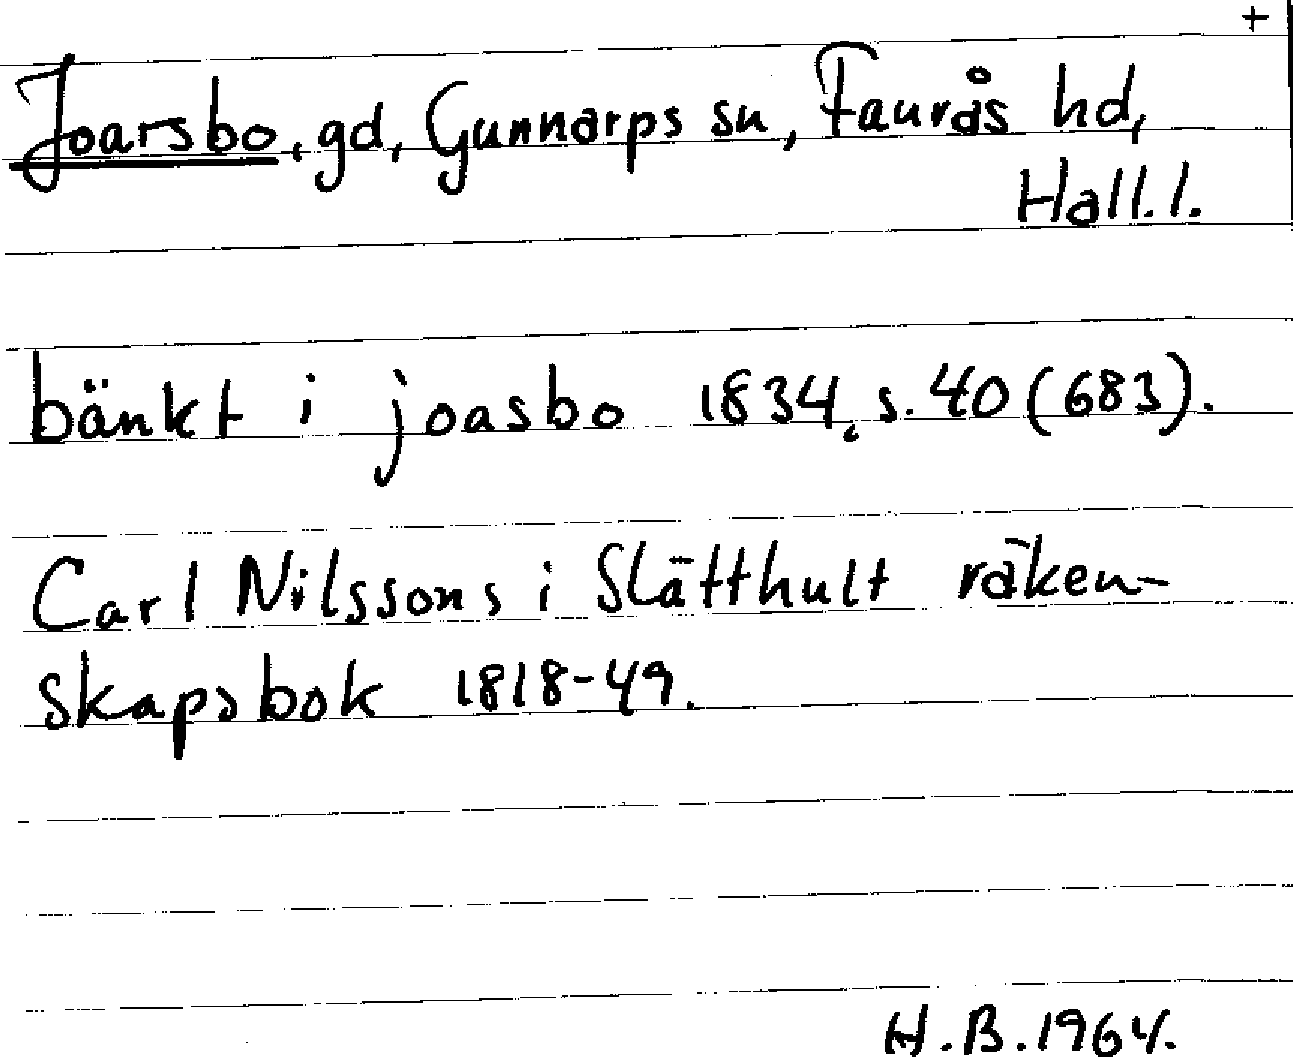 +
Joarsbo, gd, Gunnarps sn, Faurås hd,
Hall. l.
bänkt i joasbo 1834, s. 40 (683).
Carl Nilssons i Slätthult räken-
skapsbok 1818-49.
H.B. 1964.